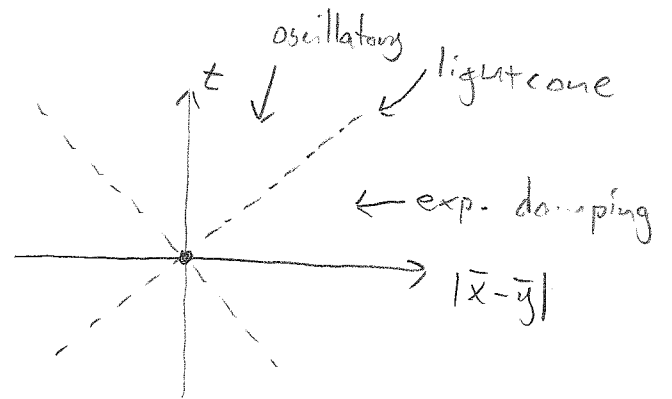 oscillatory
t
lightcone
← exp. damping
|x̄-ȳ|